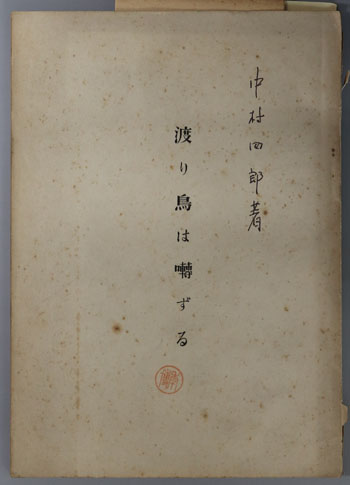 中村四郎著
渡り鳥は囀ずる